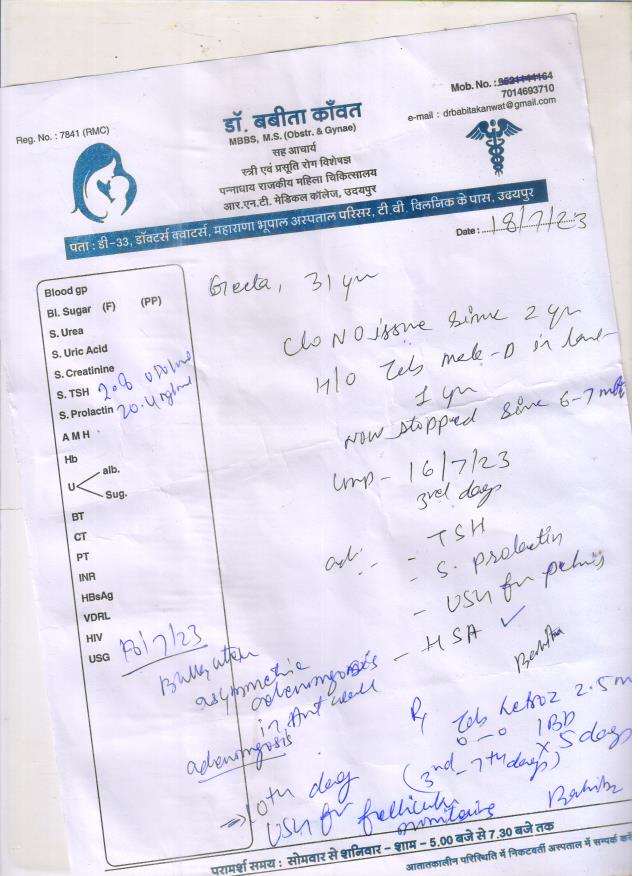 Reg. No. : 7841 (RMC)
डॉ. बबीता काँवत
MBBS, M.S. (Obstr. & Gynae)
सह आचार्य
स्त्री एवं प्रसूति रोग विशेषज्ञ
पन्नाधाय राजकीय महिला चिकित्सालय
आर.एन.टी. मेडिकल कॉलेज, उदयपुर
Mob. No. :
7014693710
e-mail : drbabitakanwat@gmail.com
पता : डी-33, डॉक्टर्स क्वाटर्स, महाराणा भूपाल अस्पताल परिसर, टी.वी. क्लिनिक के पास, उदयपुर
Date : 18/7/23
Blood gp
Bl. Sugar (F) (PP)
S. Urea
S. Uric Acid
S. Creatinine
S. TSH 2.08
S. Prolactin 20.4
A M H
Hb
U alb.
Sug.
BT
CT
PT
INR
HBsAg
VDRL
HIV
USG /7/23
Bulky uterus
asymmetric
adenomyosis
in Ant wall
adenomyosis
Geeta, 31 yr
C/o NO issue since 2 yr
H/O Tab in last
1 yr
NOW stopped since 6-7 mth
LMP - 16/7/23
3rd day
adv.
- TSH
- S. prolactin
- USG for pelvis
- HSA ✓
Babita
Rx Tab Letroz 2.5 m
0-0 1BD
x 5 days
(3rd - 7th days)
10th day
USG for follicular
monitoring
Babita
परामर्श समय : सोमवार से शनिवार - शाम - 5.00 बजे से 7.30 बजे तक
आतातकालीन परिस्थिति में निकटवर्ती अस्पताल में सम्पर्क करें